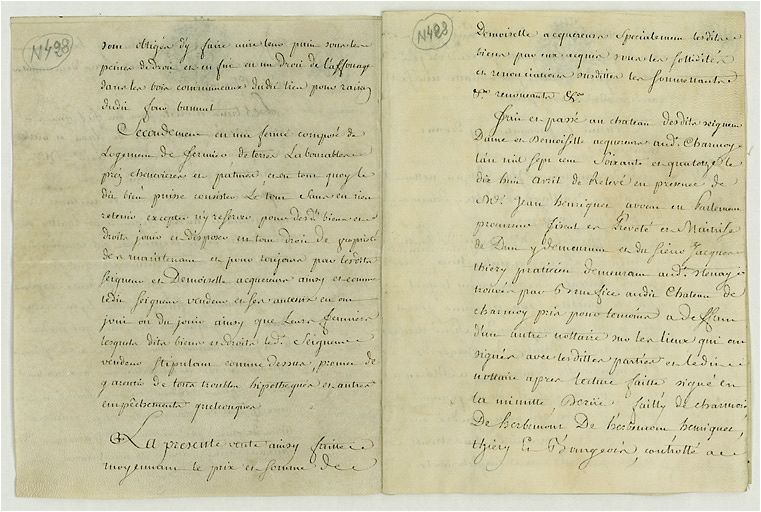 N428
sont obligés d'y faire cuire leur pain sous les
peines de droit et en fin en un Droit de l'affouage
dans les bois communaux dudit lieu pour raison
dudit four bannal
Secondement en une ferme composé de
Logement de fermier de terres Labourables
prez chenevieres et en tout quoy le
dit bien puisse consister Le tout Sans en rien
retenir excepter n'y reserver pour desd. biens et
droits jouir et disposer en tout droit de propriété
des maintenant et pour toujours par lesdits
Seigneur et Demoiselle acquereurs ainsy et comme
ledit Seigneur vendeur et ses auteurs en ont
joui ou du jouir ainsy que Leurs fermiers
lesquels dits biens et droits led. Seigneur
vendeur Stipulant comme dessus, promet de
garantir de tous troubles hipotheques et autres
empêchements quelconques
La presente vente ainsy faitte
moyennant le prix et somme de
N428
Demoiselle acquereurs Specialement lesdits
biens par eux acquis sous les solidités
et renonciations susdittes les soumettants
&a. renonceants &a.
Fait et passé au chateau desdits seigneur
Dame et Demoiselle acquereurs aud. Charmoy
l'an mil sept cent Soixante et quatorze le
dix huit avril de Relevé en presence de
Me. Jean henriquez avocat en Parlement
procureur fiscal en Prevoté et Maitrise
de Dun y demeurant et du Sieur Jacques
thiery praticien demeurant aud. Stenay
trouvés par audit Chateau de
charmoy pris pour temoins a Deffaut
d'un autre nottaire sur les lieux qui ont
signés avec lesdittes parties et ledit
nottaire apres lecture faitte signé en
la minutte, failly de charmois
De herbemont De herbemont henriquez,
thiery Et Bourgeois, controllé a